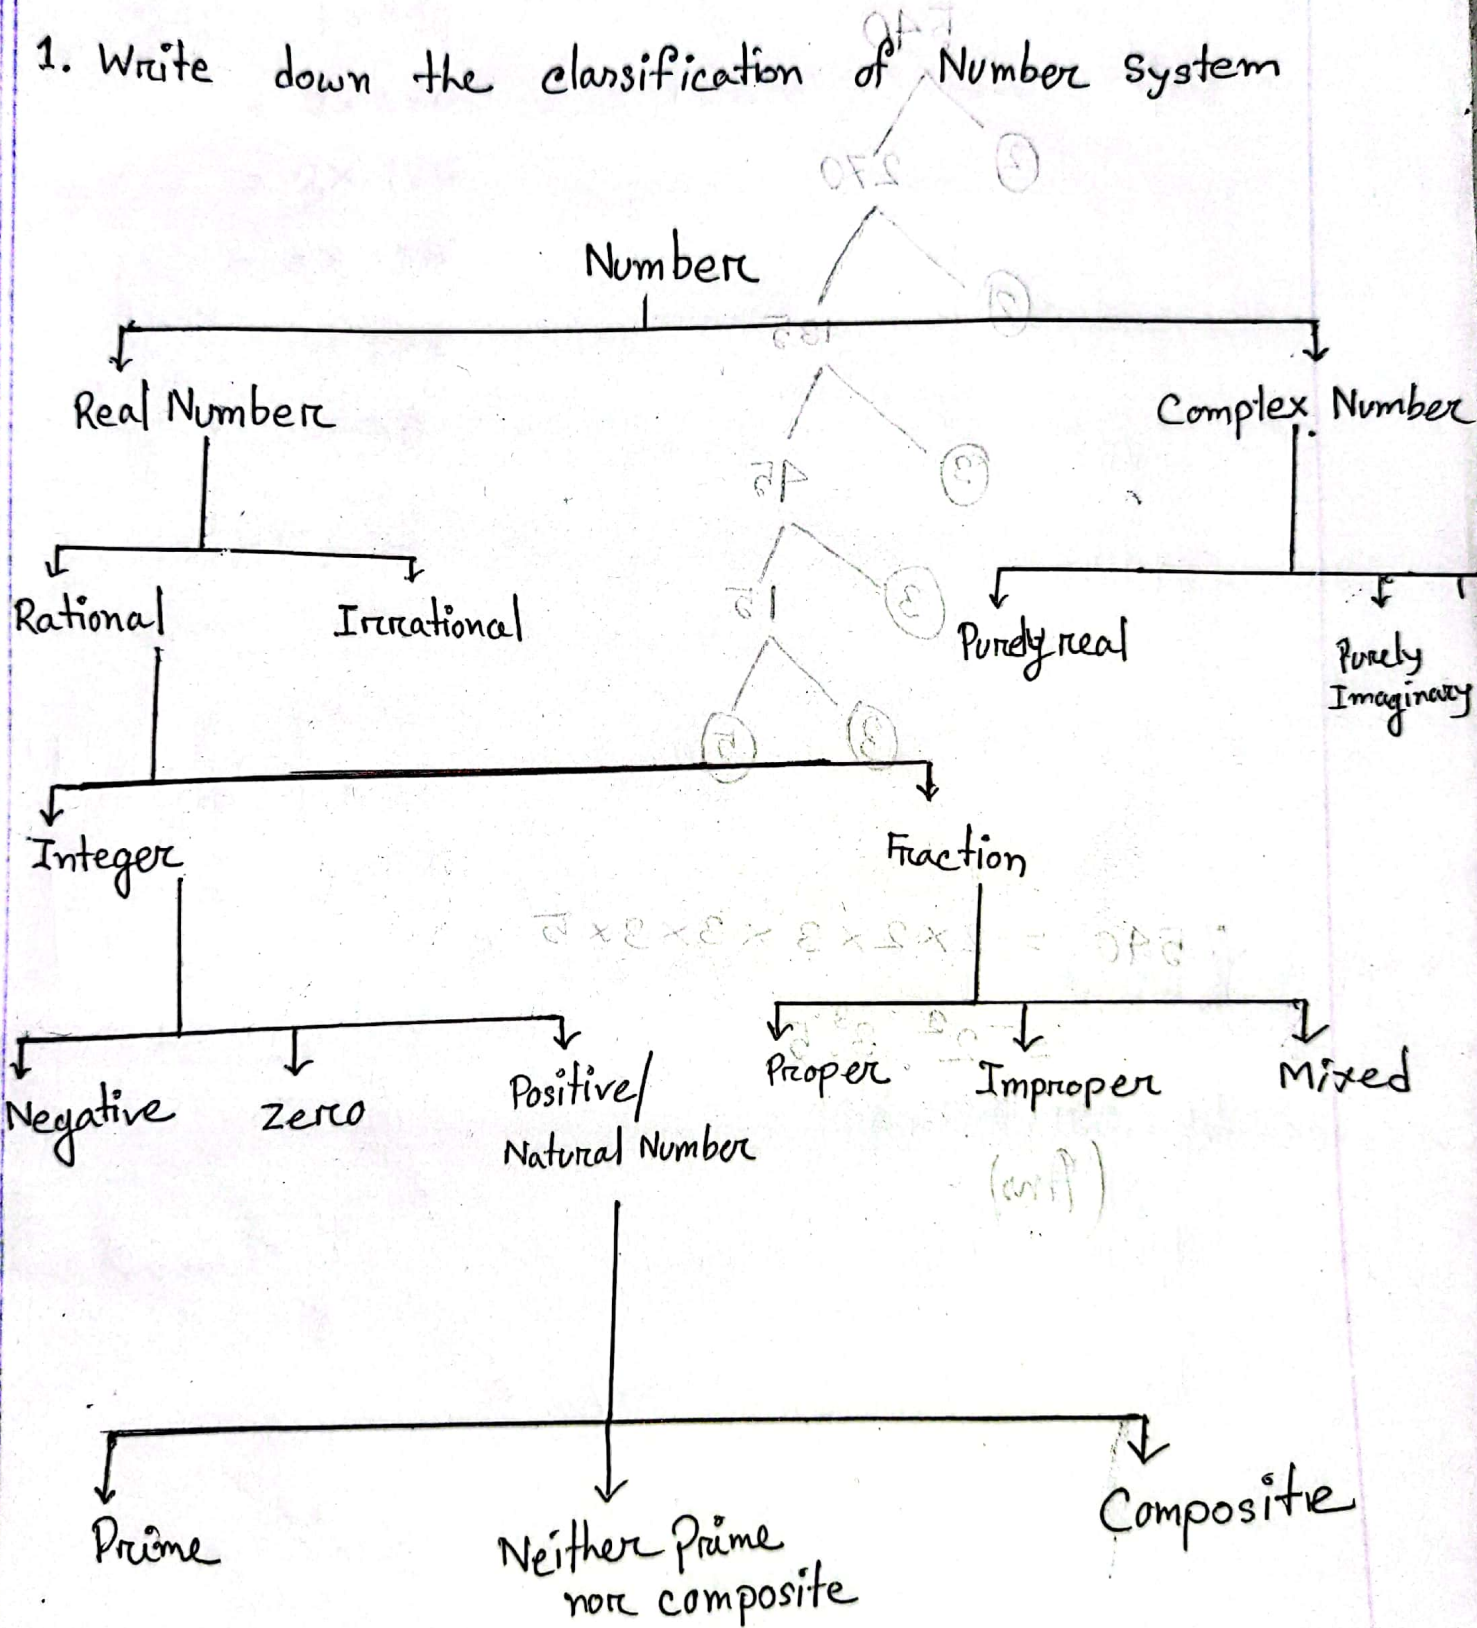 1. Write down the classification of Number system
Number
Real Number Complex Number
Rational Irrational Purely real Purely
Imaginary
Integer Fraction
Negative Zero Positive/
Natural Number
Proper Improper Mixed
Prime Neither Prime
nor composite
Composite
540
270 2
135 2
45 3
15 3
5 3